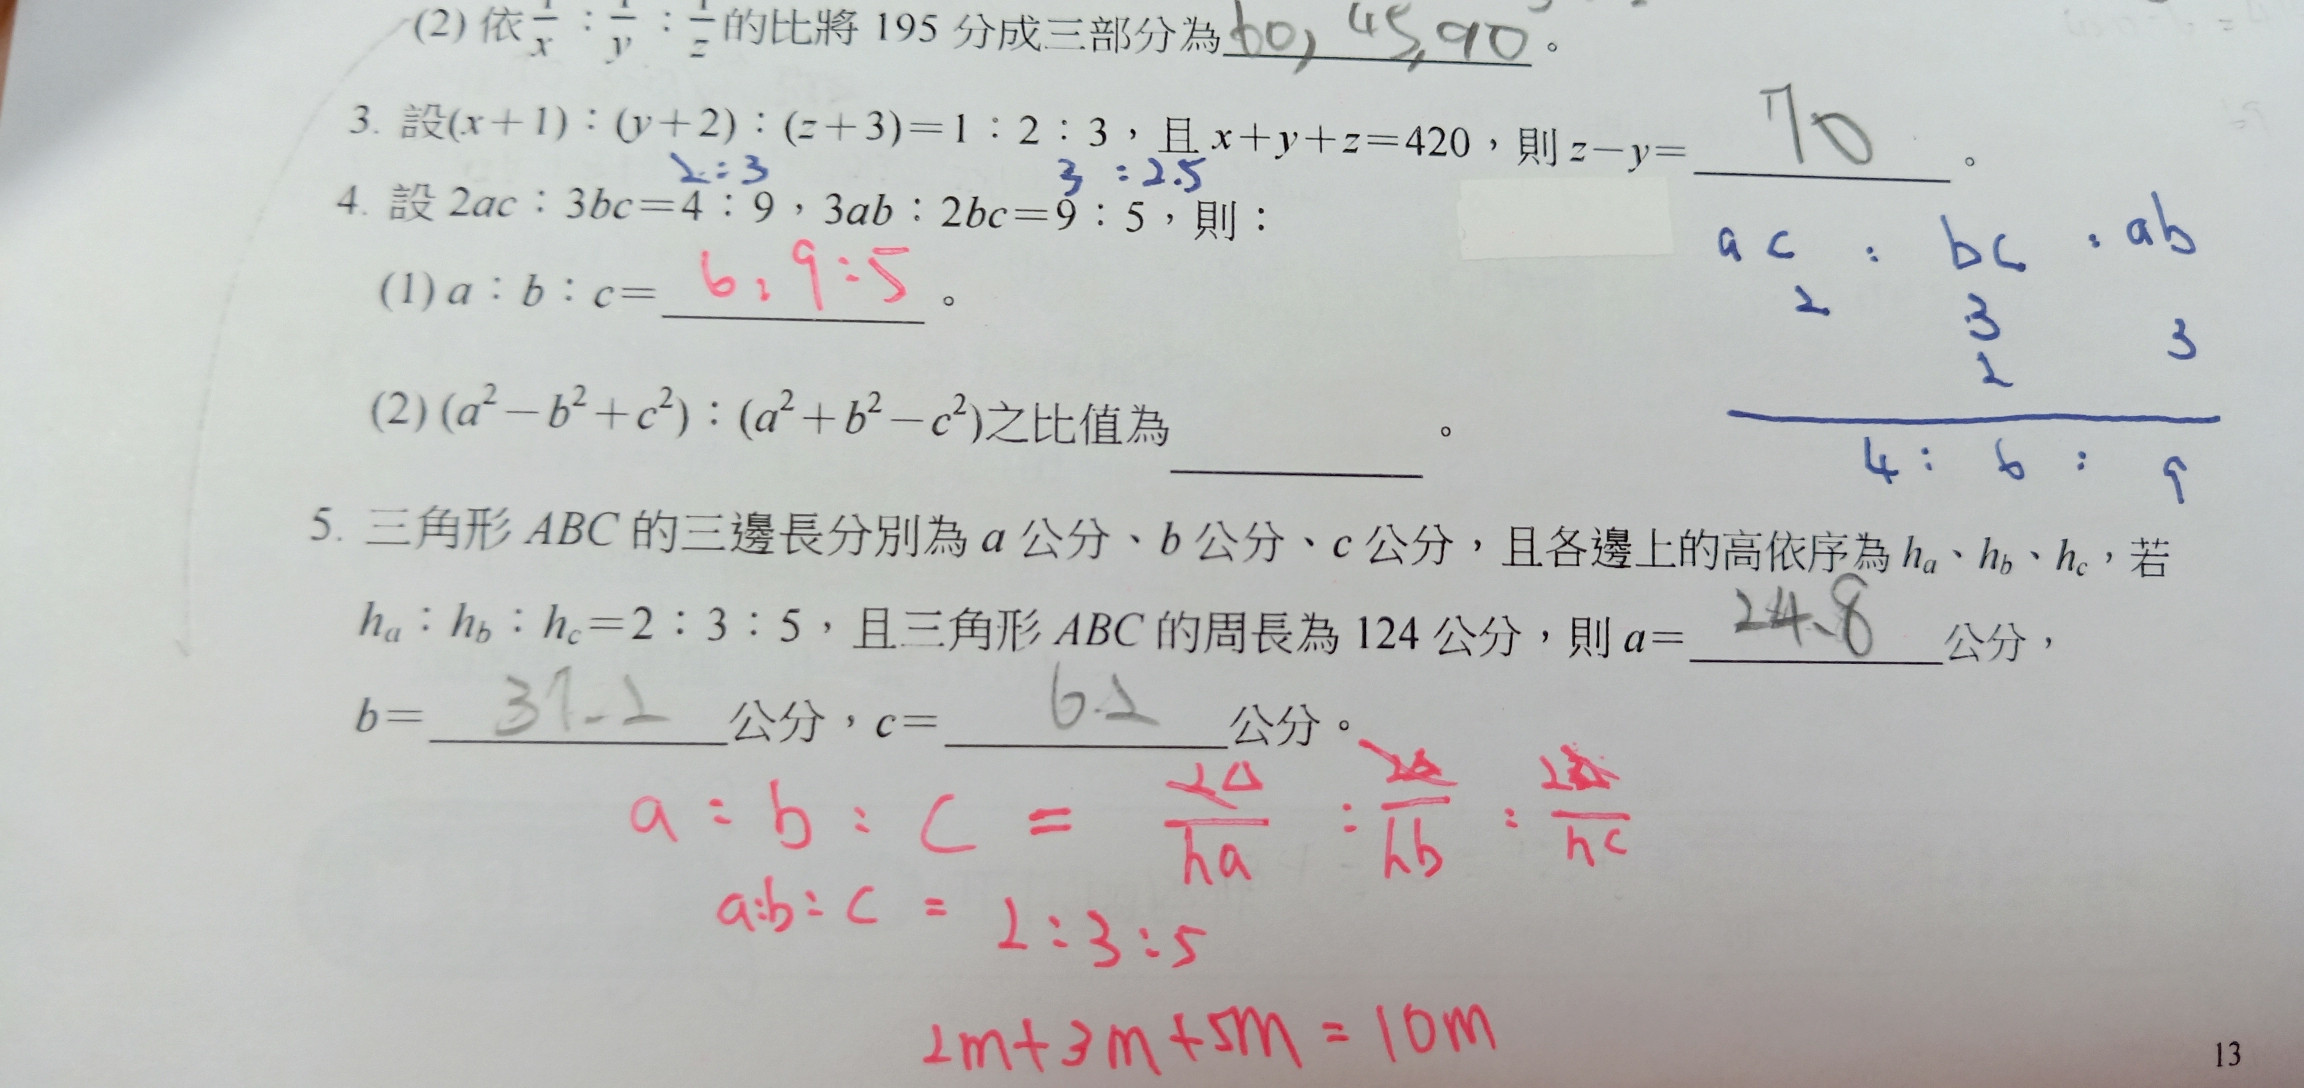 (2) 依1/x:1/y:1/z的比將 195 分成三部分為60, 45, 90。
3. 設(x+1):(y+2):(z+3)=1:2:3,且 x+y+z=420,則 z-y=70。
2:3 3:2.5
4. 設 2ac:3bc=4:9,3ab:2bc=9:5,則:
ac : bc : ab
(1) a:b:c=6:9:5。
2 3
3
2
(2) (a²-b²+c²):(a²+b²-c²)之比值為 。
4 : 6 : 9
5. 三角形 ABC 的三邊長分別為 a 公分、b 公分、c 公分,且各邊上的高依序為 hₐ、h_b、h_c,若
hₐ:h_b:h_c=2:3:5,且三角形 ABC 的周長為 124 公分,則 a=24.8公分,
b=37.2公分,c=62公分。
a : b : c = 2△/ha : 2△/hb : 2△/hc
a:b:c = 2:3:5
2m+3m+5m=10m
13